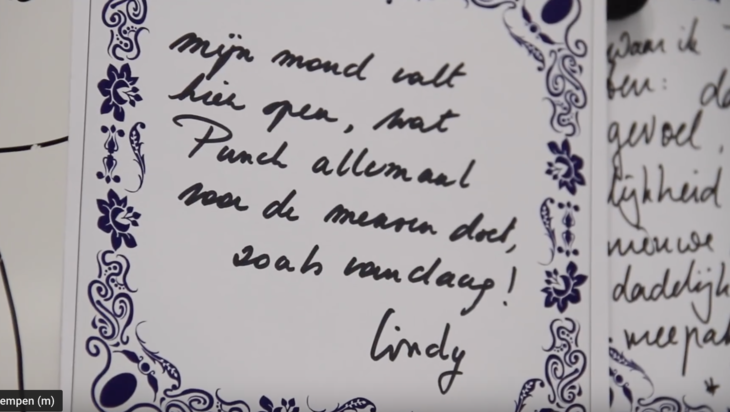 mijn mond valt
hier open, wat
Punch allemaal
voor de mensen doet,
zoals vandaag!
Lindy
waar ik
gevoel,
lijkheid
nieuwe
dadelijk
meepak
*
empen (m)